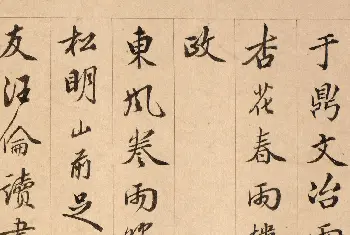 于鼎文冶
杏花春雨
政
東風卷雨
松明山前足
友汪倫讀書